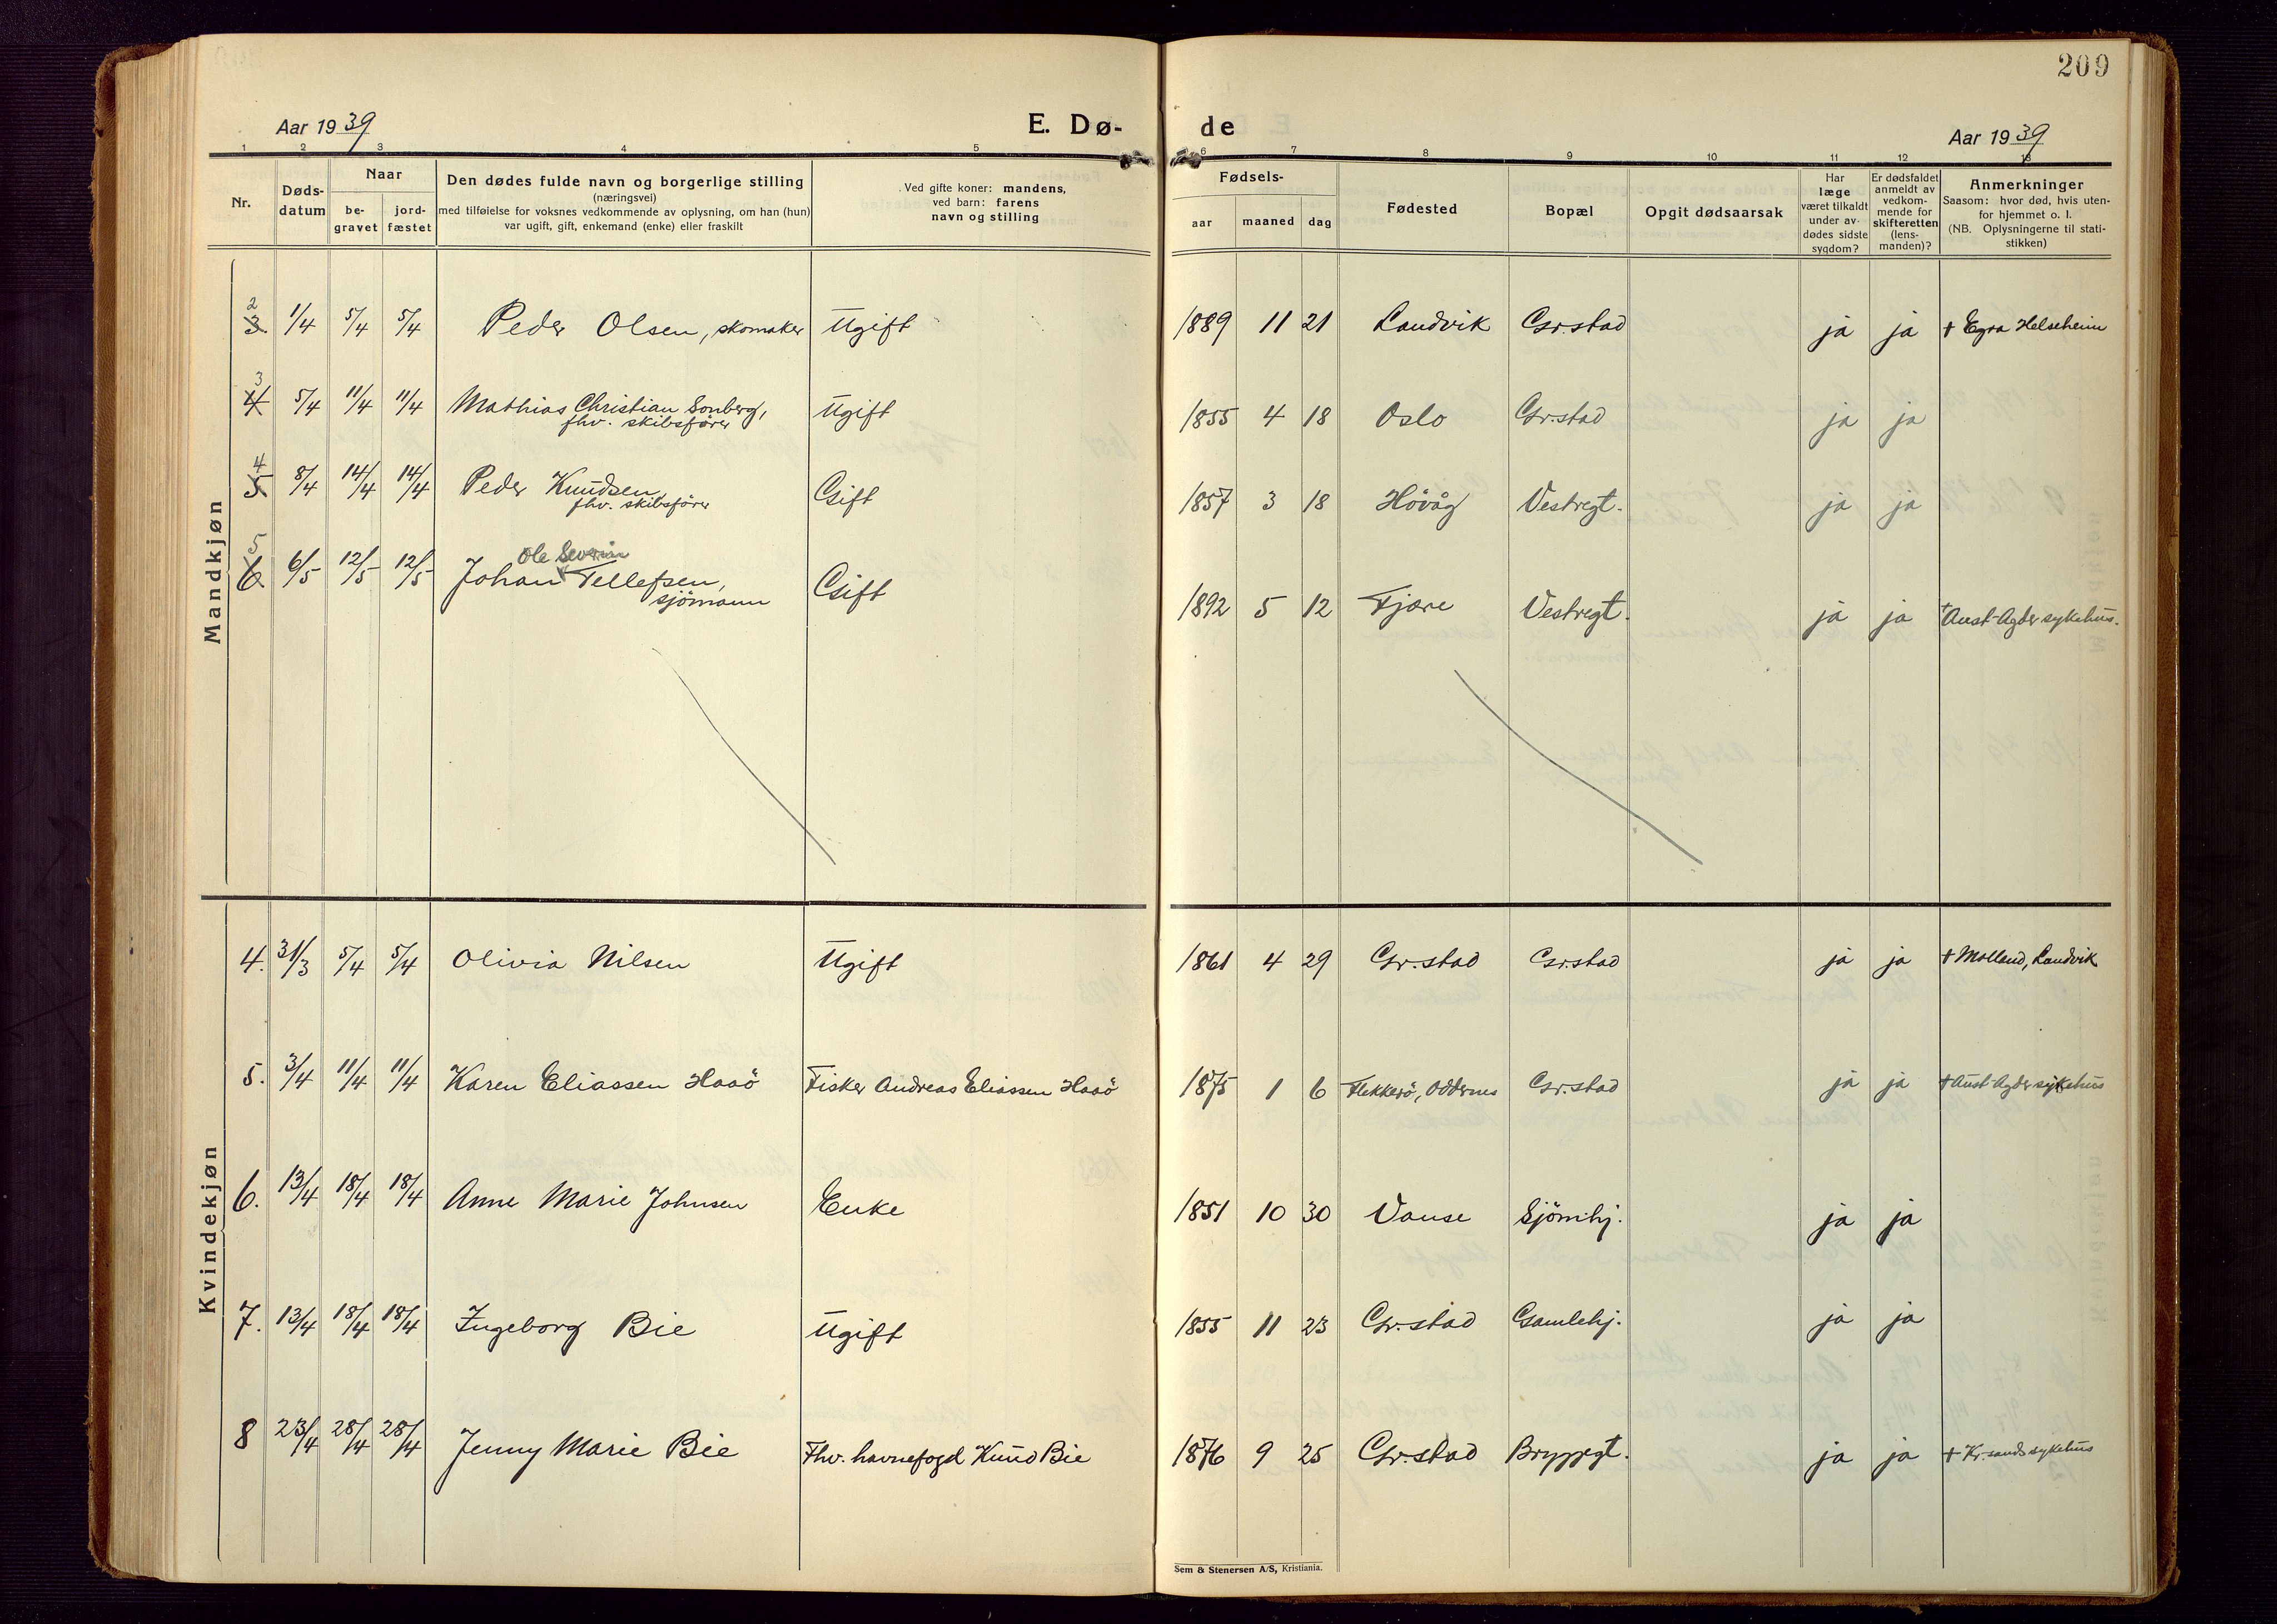 209
Aar 1939
E. Dø-
de
Aar 1939
1 2 3 4 5 6 7 8 9 10 11 12 13
Nr.
Døds-
datum
Naar
be-
gravet
jord-
fæstet
Den dødes fulde navn og borgerlige stilling
(næringsvei)
med tilføielse for voksnes vedkommende av oplysning, om han (hun)
var ugift, gift, enkemand (enke) eller fraskilt
Ved gifte koner: mandens,
ved barn: farens
navn og stilling
Fødsels-
aar maaned dag
Fødested
Bopæl
Opgit dødsaarsak
Har
læge
været tilkaldt
under av-
dødes sidste
sygdom?
Er dødsfaldet
anmeldt av
vedkom-
mende for
skifteretten
(lens-
manden)?
Anmerkninger
Saasom: hvor død, hvis uten-
for hjemmet o. l.
(NB. Oplysningerne til stati-
stikken)
Mandkjøn
2
3. 1/4 5/4 5/4 Peder Olsen, skomaker Ugift 1889 11 21 Landvik Gr.stad ja ja + Egra Helseheim
3
4 5/4 11/4 11/4 Mathias Christian Sonberg, Ugift 1855 4 18 Oslo Gr.stad ja ja
fhv. skibsfører
4
5 8/4 14/4 14/4 Peder Knudsen, Gift 1857 3 18 Høvåg Vestregt. ja ja
fhv. skibsfører
5 Ole Severin
6 6/5 12/5 12/5 Johan Tellefsen, Gift 1892 5 12 Fjære Vestregt. ja ja + Aust-Agder sykehus.
sjömann
Kvindekjøn
4. 31/3 5/4 5/4 Olivia Nilsen Ugift 1861 4 29 Gr.stad Gr.stad ja ja + Molland, Landvik
5. 3/4 11/4 11/4 Karen Eliassen Haaö Fisker Andreas Eliassen Haaö 1875 1 6 Flekkerö, Oddernes Gr.stad ja ja + Aust-Agder sykehus
6. 13/4 18/4 18/4 Anne Marie Johnsen Enke 1851 10 30 Vanse Sjömhj. ja ja
7. 13/4 18/4 18/4 Ingeborg Bie Ugift 1855 11 23 Gr.stad Gamlehj. ja ja
8 23/4 28/4 28/4 Jenny Marie Bie Fhv. havnefogd Knud Bie 1876 9 25 Gr.stad Bryggegt. ja ja + Kr.sands sykehus
Sem & Stenersen A/S, Kristiania.